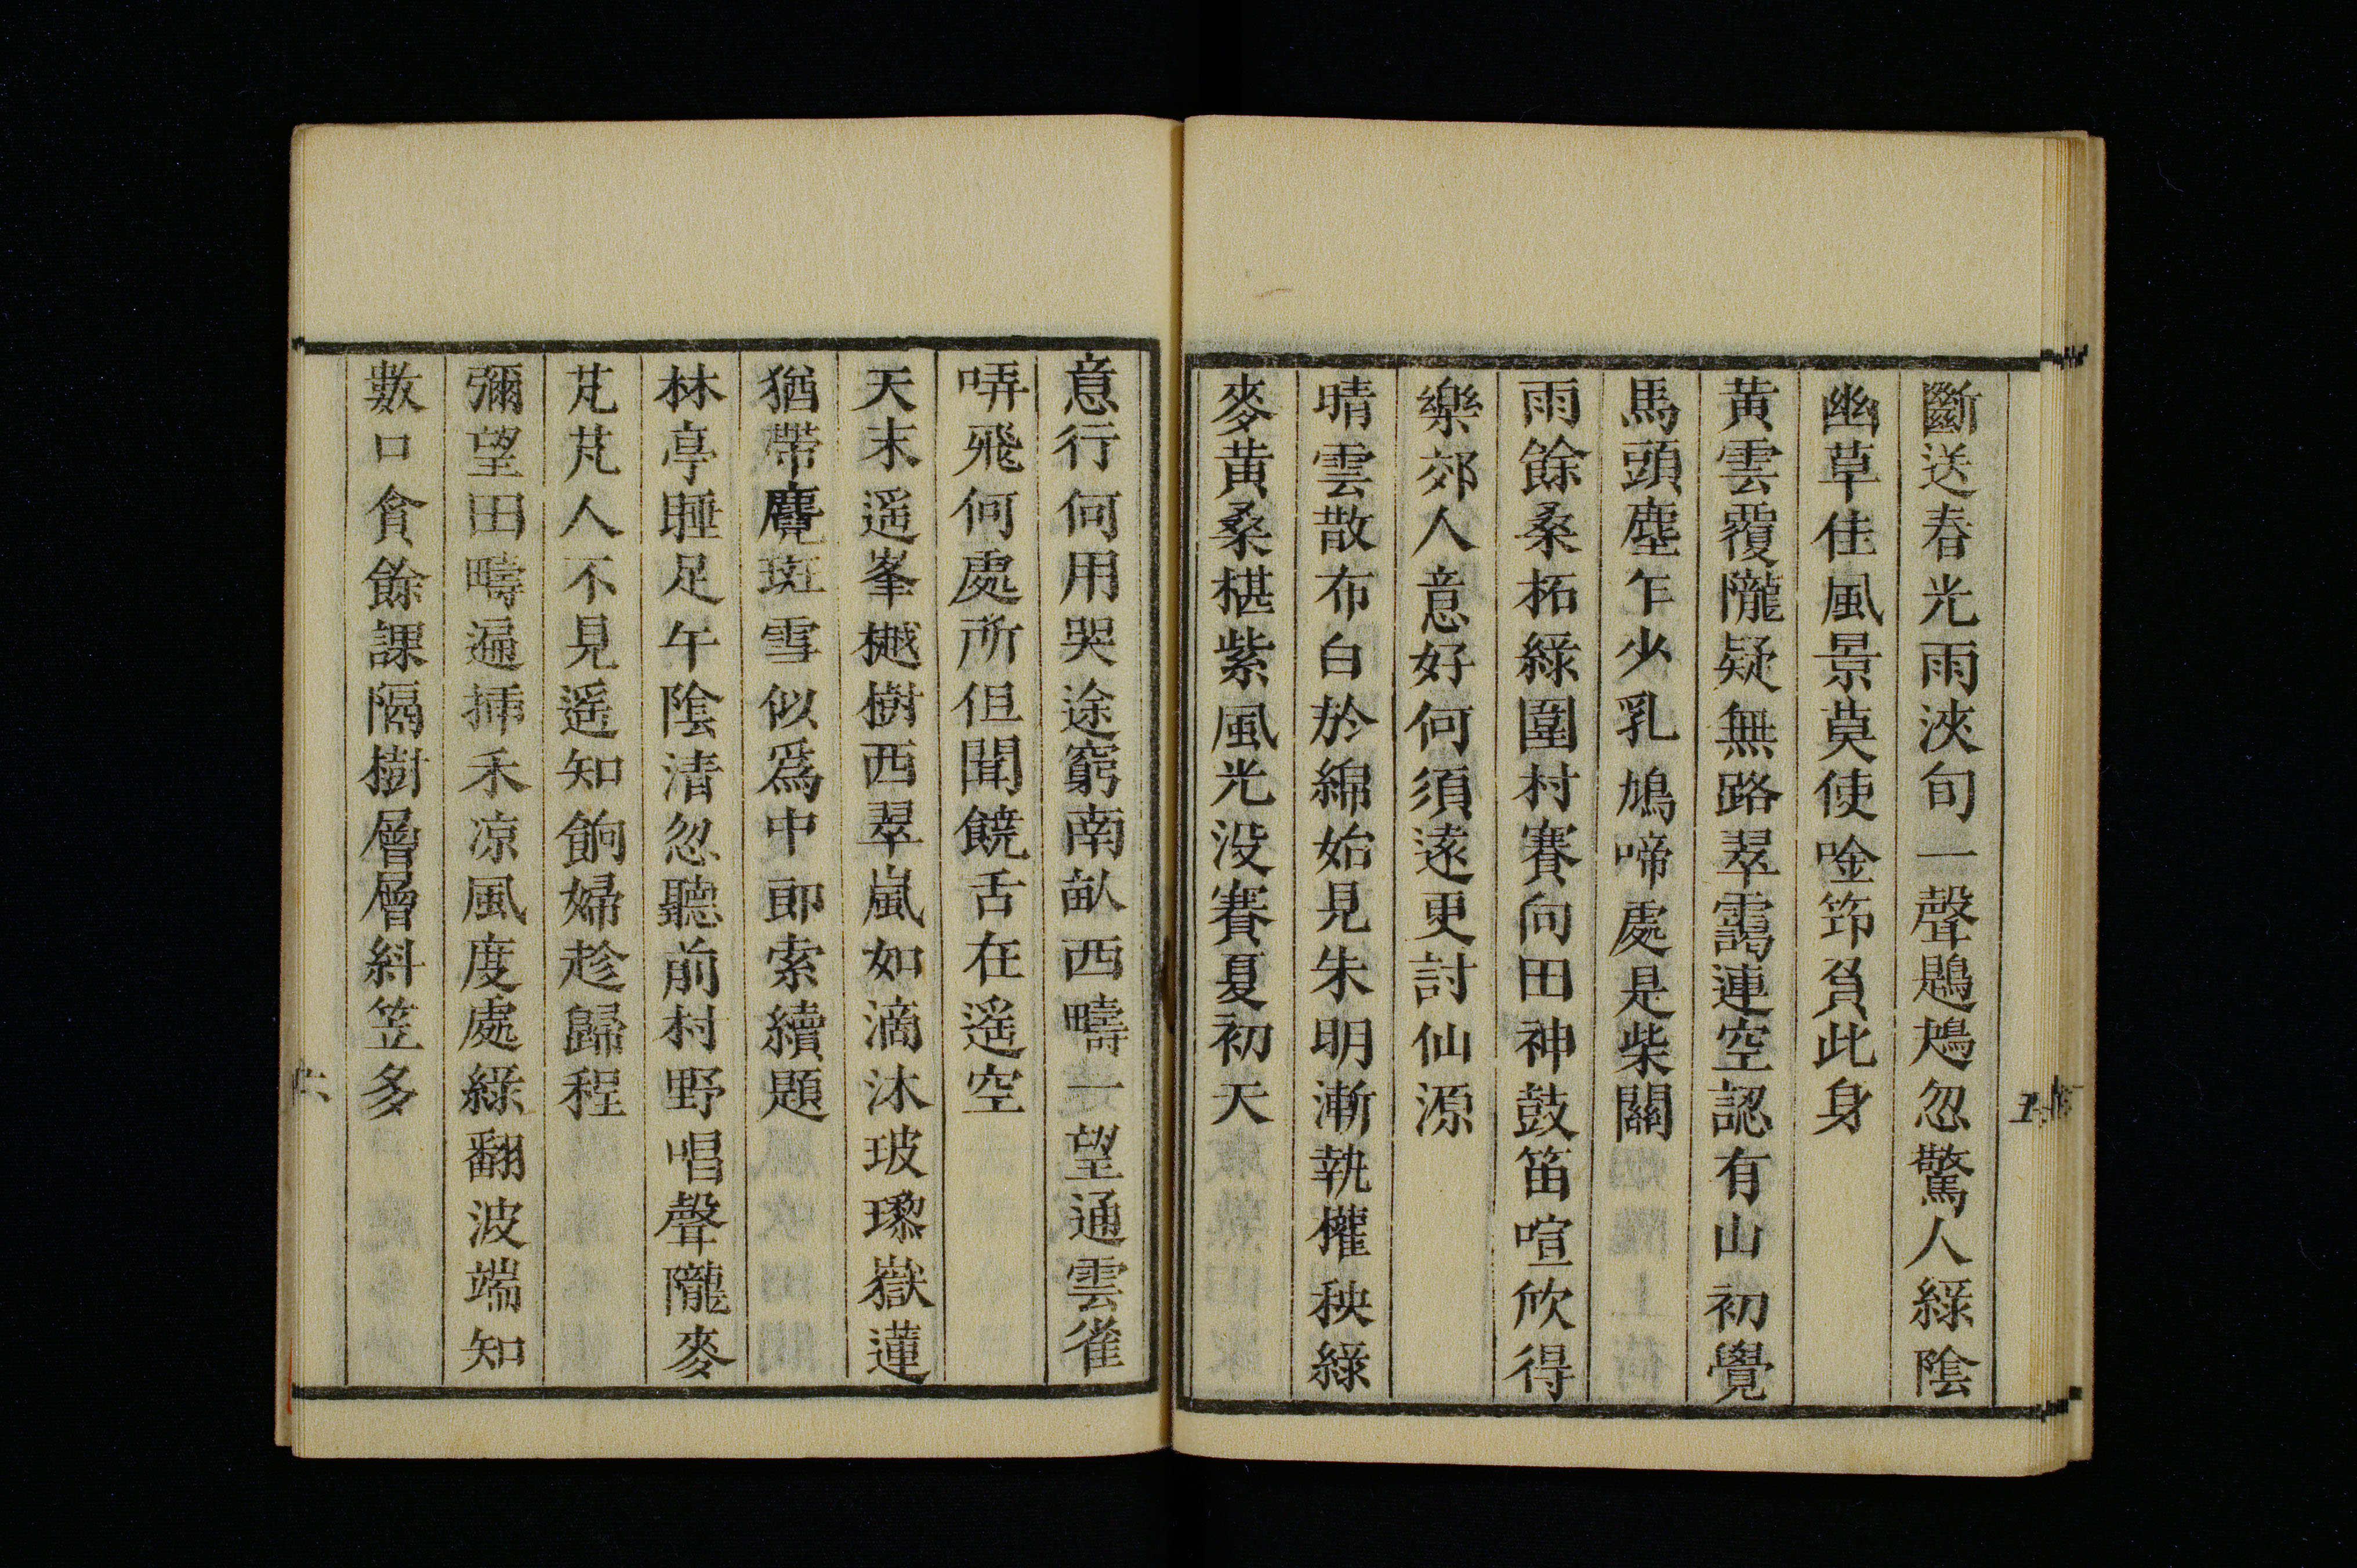 斷送春光雨浹旬一聲鶗鴂忽驚人綠陰
幽草佳風景莫使唫笻負此身
黃雲覆隴疑無路翠靄連空認有山初覺
馬頭塵乍少乳鳩啼處是柴關
雨餘桑柘綠圍村賽向田神鼓笛喧欣得
樂郊人意好何須遠更討仙源
晴雲散布白於綿始見朱明漸執權秧綠
麥黃桑椹紫風光没賽夏初天
意行何用哭途窮南畝西疇一望通雲雀
哢飛何處所但聞饒舌在遥空
天末遥峯樾樹西翠嵐如滴沐玻瓈嶽蓮
猶帶麑斑雪似爲中郎索續題
林亭睡足午陰清忽聽前村野唱聲隴麥
芃芃人不見遥知餉婦趁歸程
彌望田疇遍挿禾凉風度處綠翻波端知
數口貧餘課隔樹層層斜笠多
六